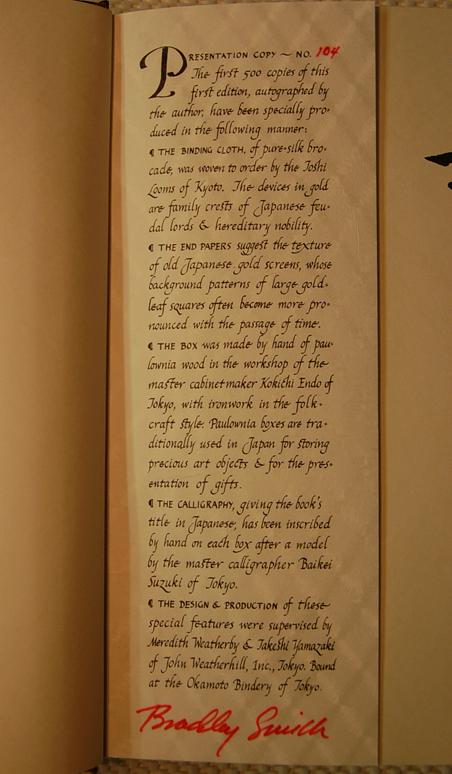 PRESENTATION COPY ~ NO. 104
The first 500 copies of this
first edition, autographed by
the author, have been specially pro-
duced in the following manner:
¶ THE BINDING CLOTH, of pure-silk bro-
cade, was woven to order by the Toshi
Looms of Kyoto. The devices in gold
are family crests of Japanese feu-
dal lords & hereditary nobility.
¶ THE END PAPERS suggest the texture
of old Japanese gold screens, whose
background patterns of large gold-
leaf squares often become more pro-
nounced with the passage of time.
¶ THE BOX was made by hand of pau-
lownia wood in the workshop of the
master cabinetmaker Kokichi Endo of
Tokyo, with ironwork in the folk-
craft style. Paulownia boxes are tra-
ditionally used in Japan for storing
precious art objects & for the pres-
entation of gifts.
¶ THE CALLIGRAPHY, giving the book's
title in Japanese, has been inscribed
by hand on each box after a model
by the master calligrapher Baikei
Suzuki of Tokyo.
¶ THE DESIGN & PRODUCTION of these
special features were supervised by
Meredith Weatherby & Takeshi Yamazaki
of John Weatherhill, Inc., Tokyo. Bound
at the Okamoto Bindery of Tokyo.
Bradley Smith